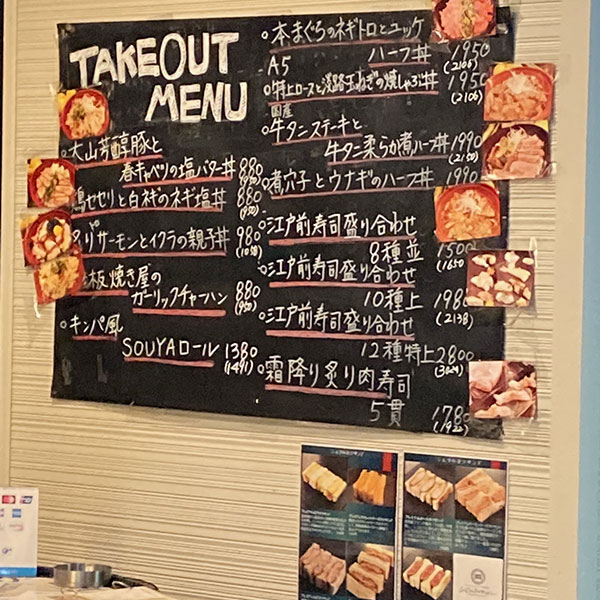 TAKEOUT
MENU
大山芳醇豚と
春キャベツの塩バター丼 880
鴨せせりと白ネギのネギ塩丼 880
炙りサーモンとイクラの親子丼 980
板焼き屋の
ガーリックチャーハン 880
(950)
キンパ風
SOUYAロール 1380
(1491)
本まぐろのネギトロとユッケ
ハーフ丼 1950
(2106)
A5
特上ロースと淡路玉ねぎの焼しゃぶ丼 1950
(2106)
国産
牛タンステーキと、
牛タン柔らか煮ハーフ丼 1990
(2150)
煮穴子とウナギのハーフ丼 1990
江戸前寿司盛り合わせ
8種並 1500
江戸前寿司盛り合わせ
10種上 1980
(2138)
江戸前寿司盛り合わせ
12種特上 2800
(3024)
霜降り炙り肉寿司
5貫 1780
(1922)